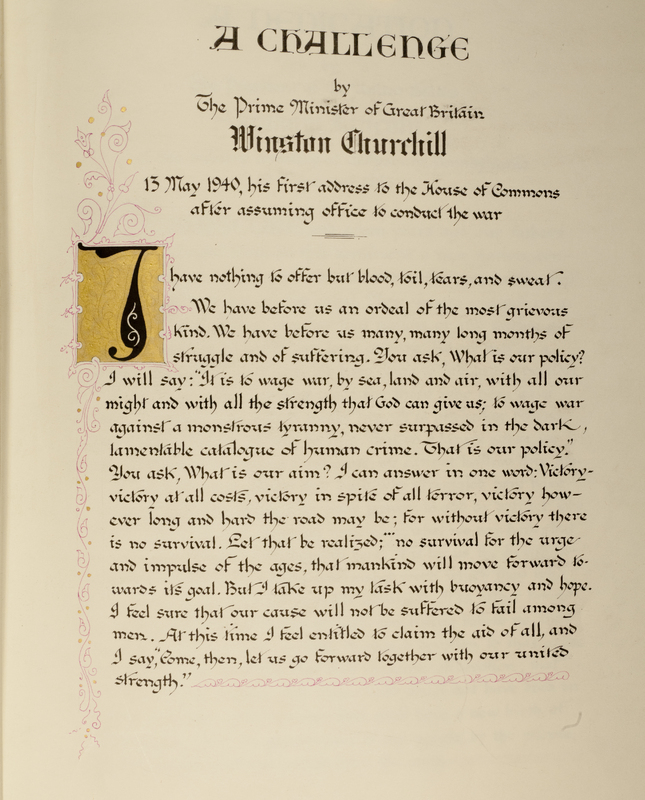 A CHALLENGE
by
The Prime Minister of Great Britain
Winston Churchill
13 May 1940, his first address to the House of Commons
after assuming office to conduct the war
I have nothing to offer but blood, toil, tears, and sweat.
We have before us an ordeal of the most grievous
kind. We have before us many, many long months of
struggle and of suffering. You ask, What is our policy?
I will say: "It is to wage war, by sea, land and air, with all our
might and with all the strength that God can give us; to wage war
against a monstrous tyranny, never surpassed in the dark,
lamentable catalogue of human crime. That is our policy."
You ask, What is our aim? I can answer in one word: Victory-
victory at all costs, victory in spite of all terror, victory how-
ever long and hard the road may be; for without victory there
is no survival. Let that be realized;''' no survival for the urge
and impulse of the ages, that mankind will move forward to-
wards its goal. But I take up my task with buoyancy and hope.
I feel sure that our cause will not be suffered to fail among
men. At this time I feel entitled to claim the aid of all, and
I say, "Come, then, let us go forward together with our united
strength."